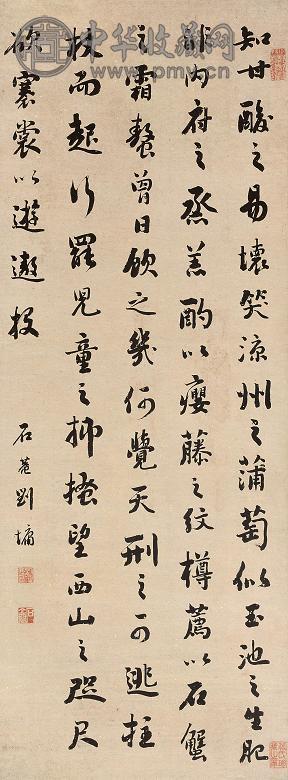 中华收藏网
知甘酸之易壞笑涼州之蒲萄似玉池之生肥
非內府之蒸羔酌以癭藤之紋樽薦以石蟹
之霜螯曾日飲之幾何覺天刑之可逃拄
杖而起行罷兒童之抑搔望西山之咫尺
欲褰裳以遊遨投
石菴劉墉